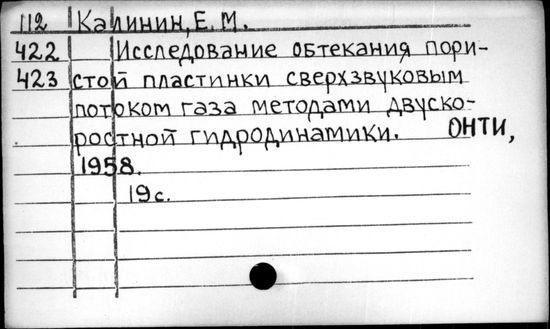 112 Калинин, Е. М.
422 Исследование обтекания пори-
423 стой пластинки сверхзвуковым
потоком газа методами двуско-
ростной гидродинамики. ОНТИ,
1958.
19с.